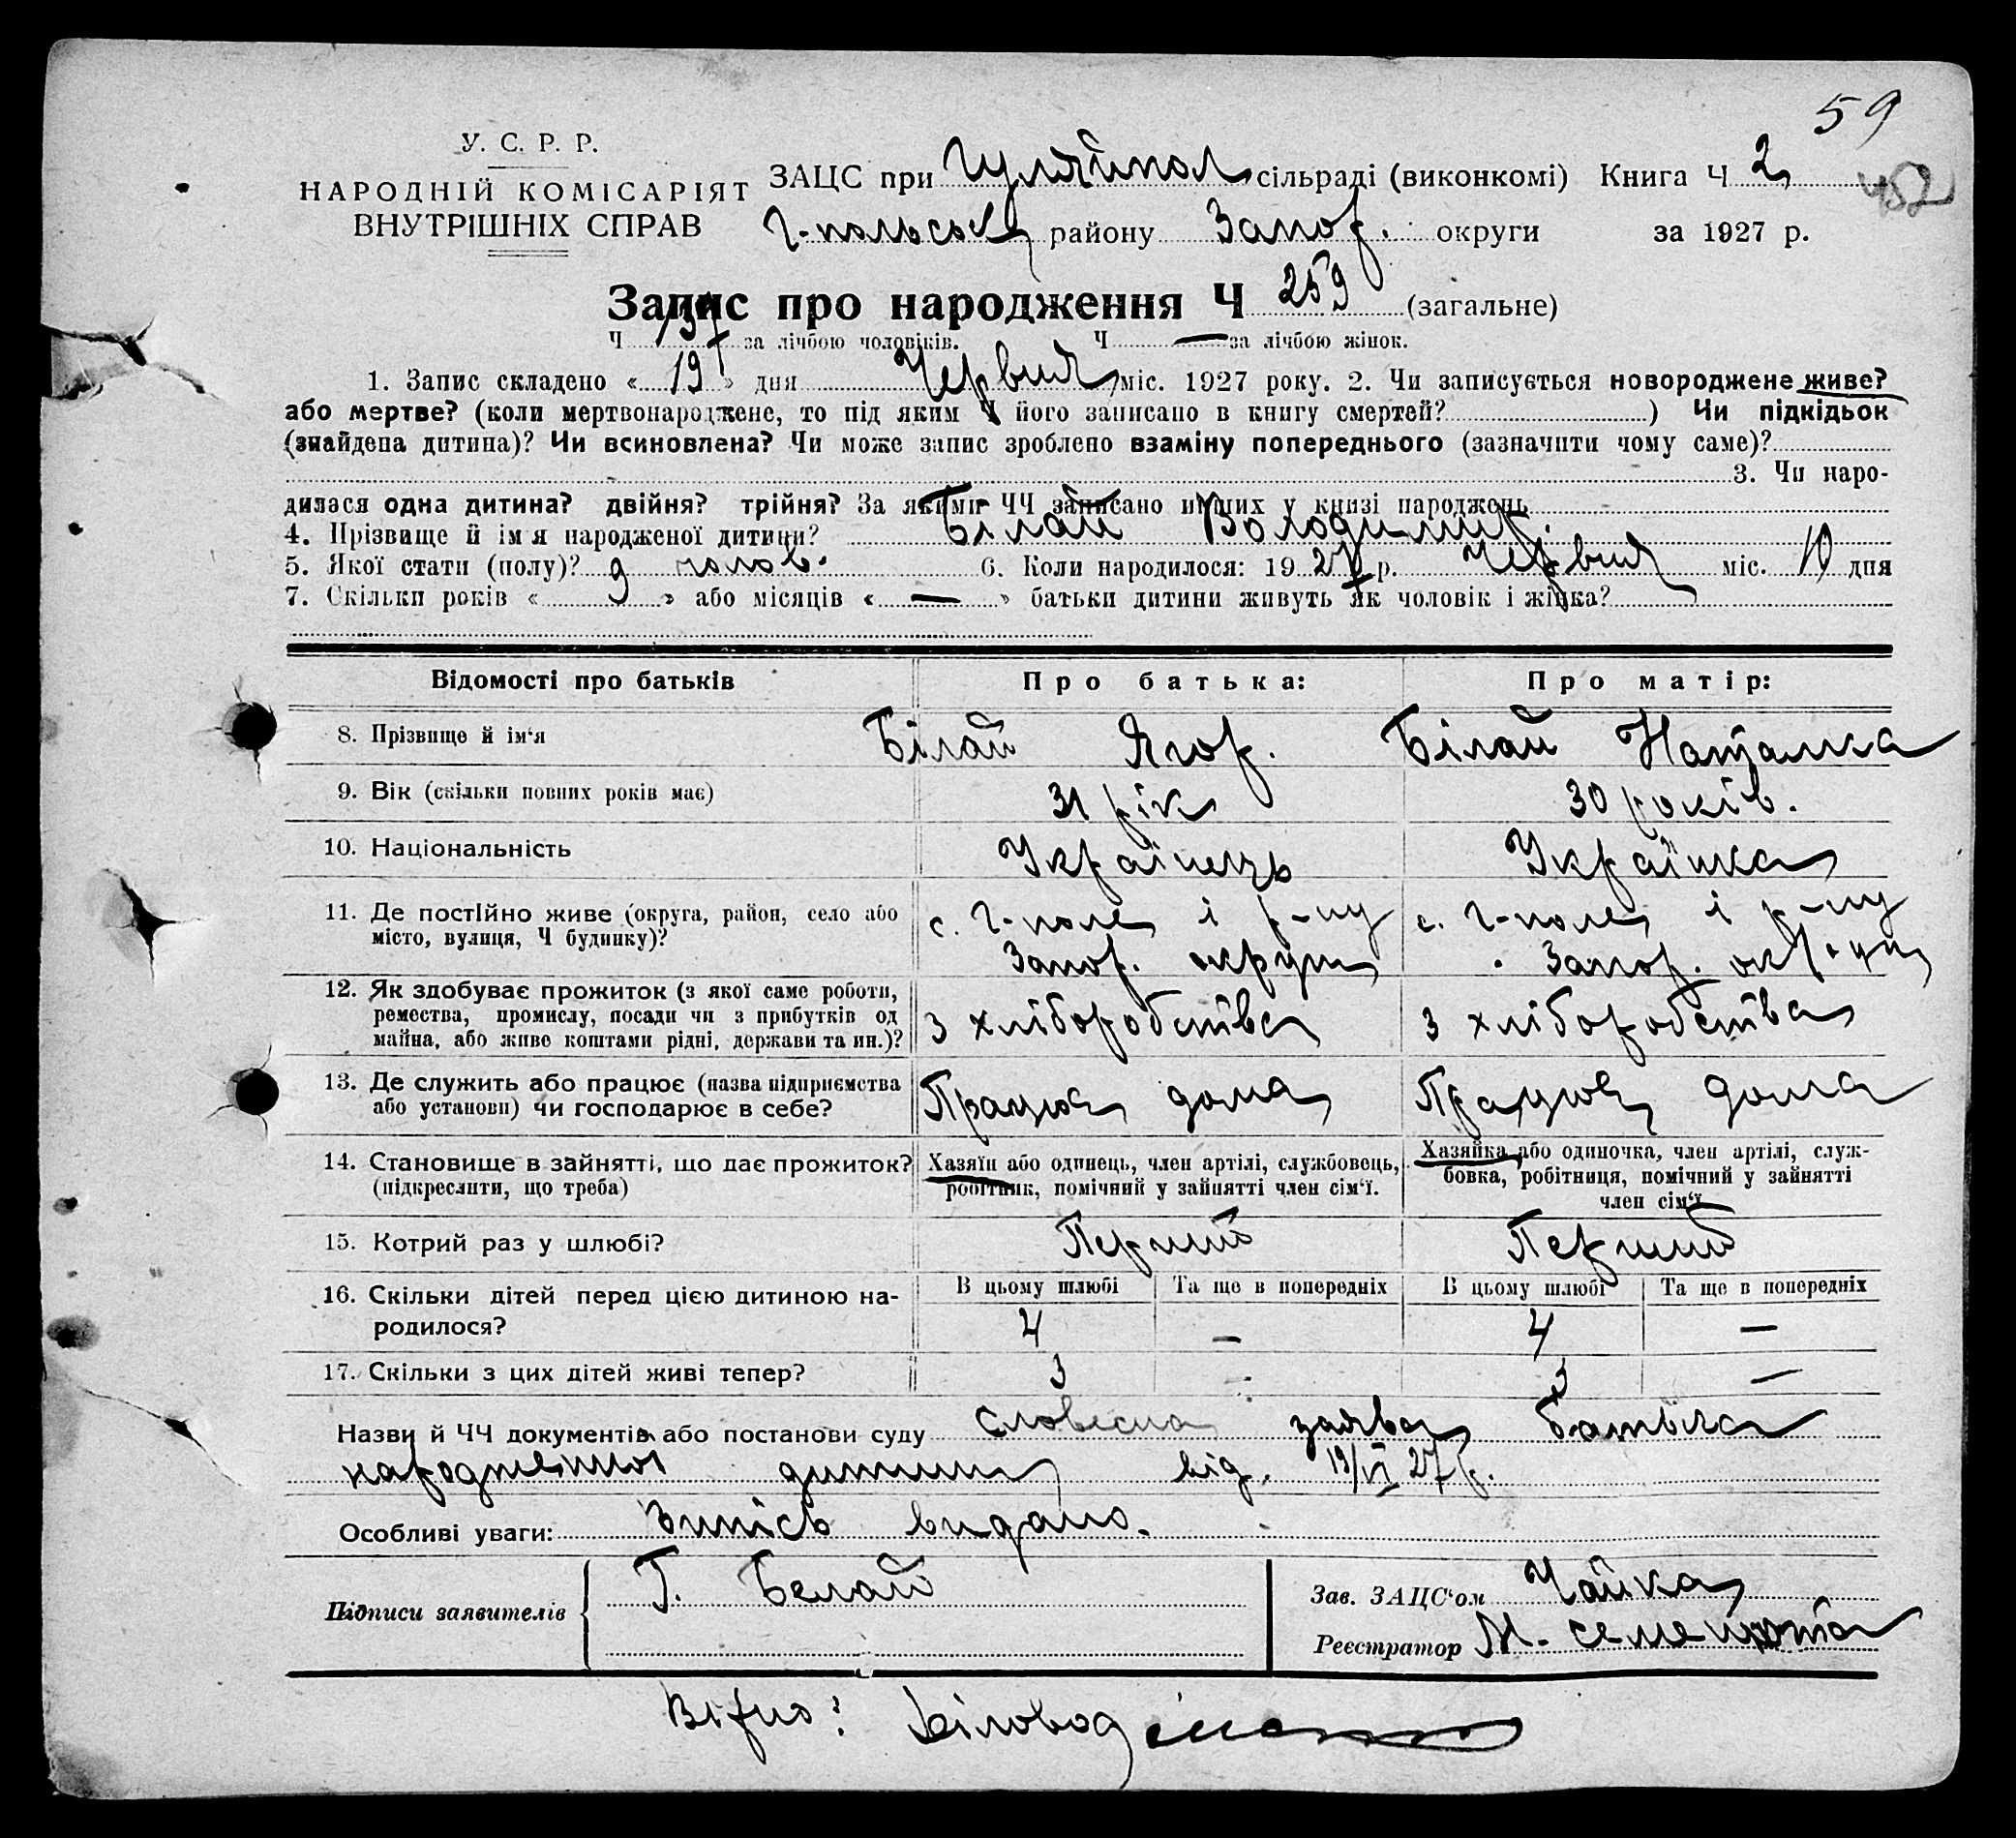 59
У. С. Р. Р.
НАРОДНІЙ КОМІСАРІЯТ
ВНУТРІШНІХ СПРАВ
ЗАЦС при Гуляйпол сільраді (виконкомі) Книга Ч 2
452
Г-польськ району Запор. округи за 1927 р.
Запис про народження Ч 259 (загальне)
Ч 137 за лічбою чоловіків. Ч — за лічбою жінок.
1. Запис складено « 19 » дня Червня міс. 1927 року. 2. Чи записується новороджене живе?
або мертве? (коли мертвонароджене, то під яким Ч його записано в книгу смертей? ) Чи підкідьок
(знайдена дитина)? Чи всиновлена? Чи може запис зроблено взаміну попереднього (зазначити чому саме)?
3. Чи наро-
дилася одна дитина? двійня? трійня? За якими ЧЧ записано инших у книзі народжень
4. Прізвище й ім'я народженої дитини? Білай Володимир.
5. Якої стати (полу)? чолов. 6. Коли народилося: 1927 р. Червня міс. 10 дня
7. Скільки років « 9 » або місяців « — » батьки дитини живуть як чоловік і жінка?
Відомості про батьків Про батька: Про матір:
8. Прізвище й ім'я Білай Ягор. Білай Наталка
9. Вік (скільки повних років має) 31 рік 30 років.
10. Національність Українець Українка
11. Де постійно живе (округа, район, село або с. Г-поле і р-ну с. Г-поле і р-ну
місто, вулиця, Ч будинку)? Запор. округи Запор. окр-ги
12. Як здобуває прожиток (з якої саме роботи,
ремества, промислу, посади чи з прибутків од З хліборобства З хліборобства
майна, або живе коштами рідні, держави та ин.)?
13. Де служить або працює (назва підприємства Працює дома Працює дома
або установи) чи господарює в себе?
14. Становище в зайнятті, що дає прожиток? Хазяїн або одинець, член артілі, службовець, Хазяйка або одиночка, член артілі, служ-
(підкреслити, що треба) робітник, помічний у зайнятті член сім'ї. бовка, робітниця, помічний у зайнятті
член сім'ї
15. Котрий раз у шлюбі? Перший Перший
16. Скільки дітей перед цією дитиною на- В цьому шлюбі Та ще в попередніх В цьому шлюбі Та ще в попередніх
родилося? 4 — 4 —
17. Скільки з цих дітей живі тепер? 3 - 3 —
Назви й ЧЧ документів або постанови суду словесна заява батька
народженої дитини від. 19/VI 27 р.
Особливі уваги: Випісь видано.
Підписи заявителів Г. Белай
Зав. ЗАЦС'ом Чайка
Реєстратор М.
Вірно: